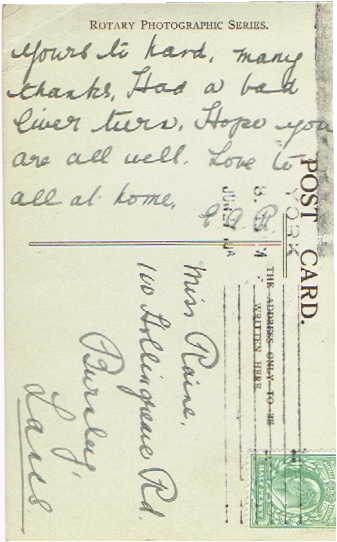 ROTARY PHOTOGRAPHIC SERIES.
Yours to hand, many
thanks, Had a bad
liver turn, Hope you
are all well. Love to
all at home.
POST CARD.
THE ADDRESS ONLY TO BE
WRITTEN HERE
YORK
Miss Raine,
100 Hollingreave Rd.
Burnley,
Lancs
HALFPENNY